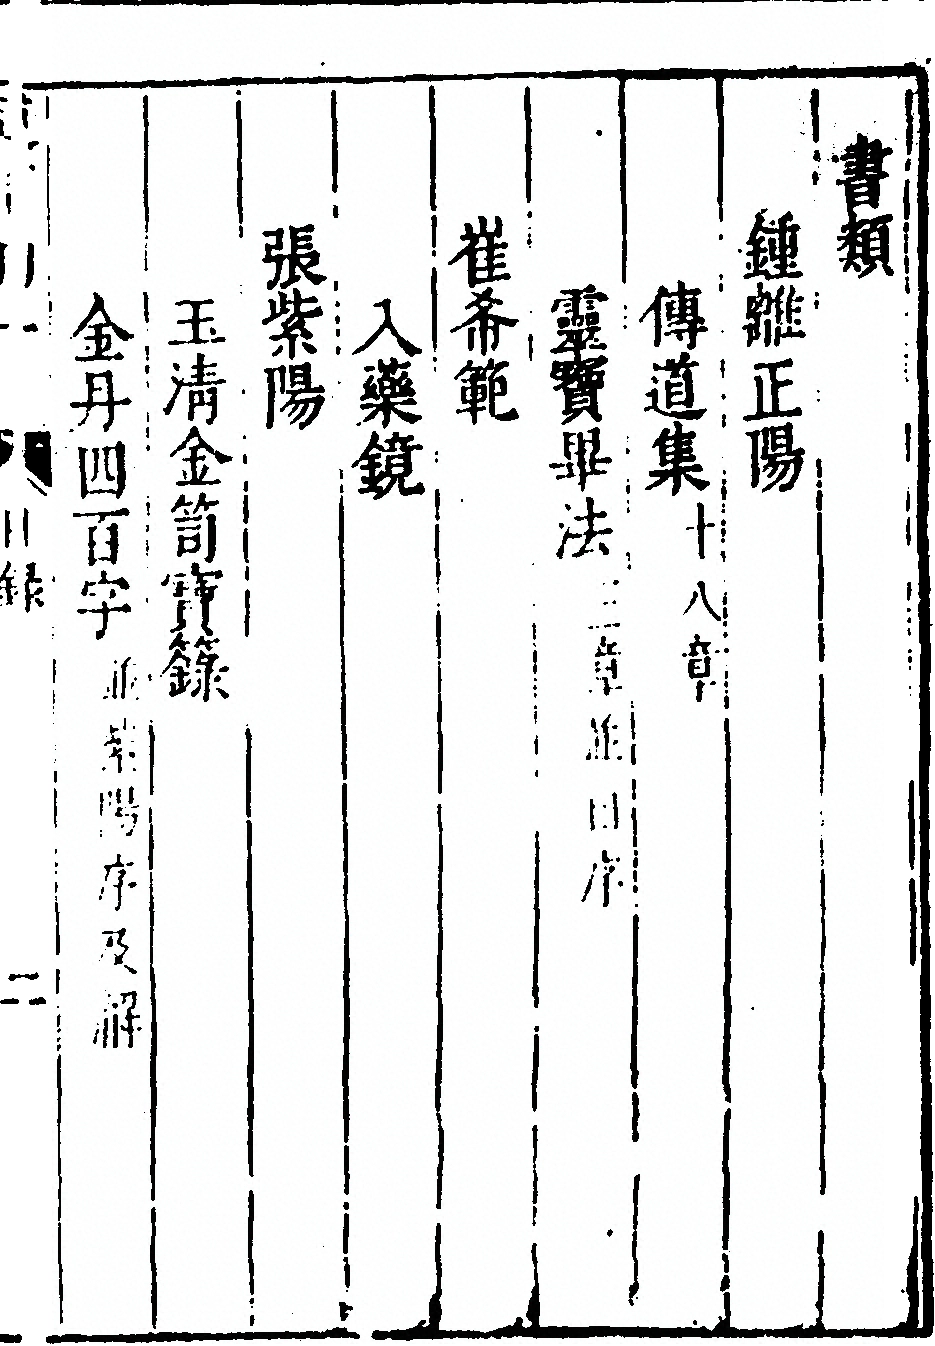 書類
鍾離正陽
傳道集十八章
靈寶畢法三章並口序
崔希範
入藥鏡
張紫陽
玉清金笥寶籙
金丹四百字並紫陽序及解
目錄
二